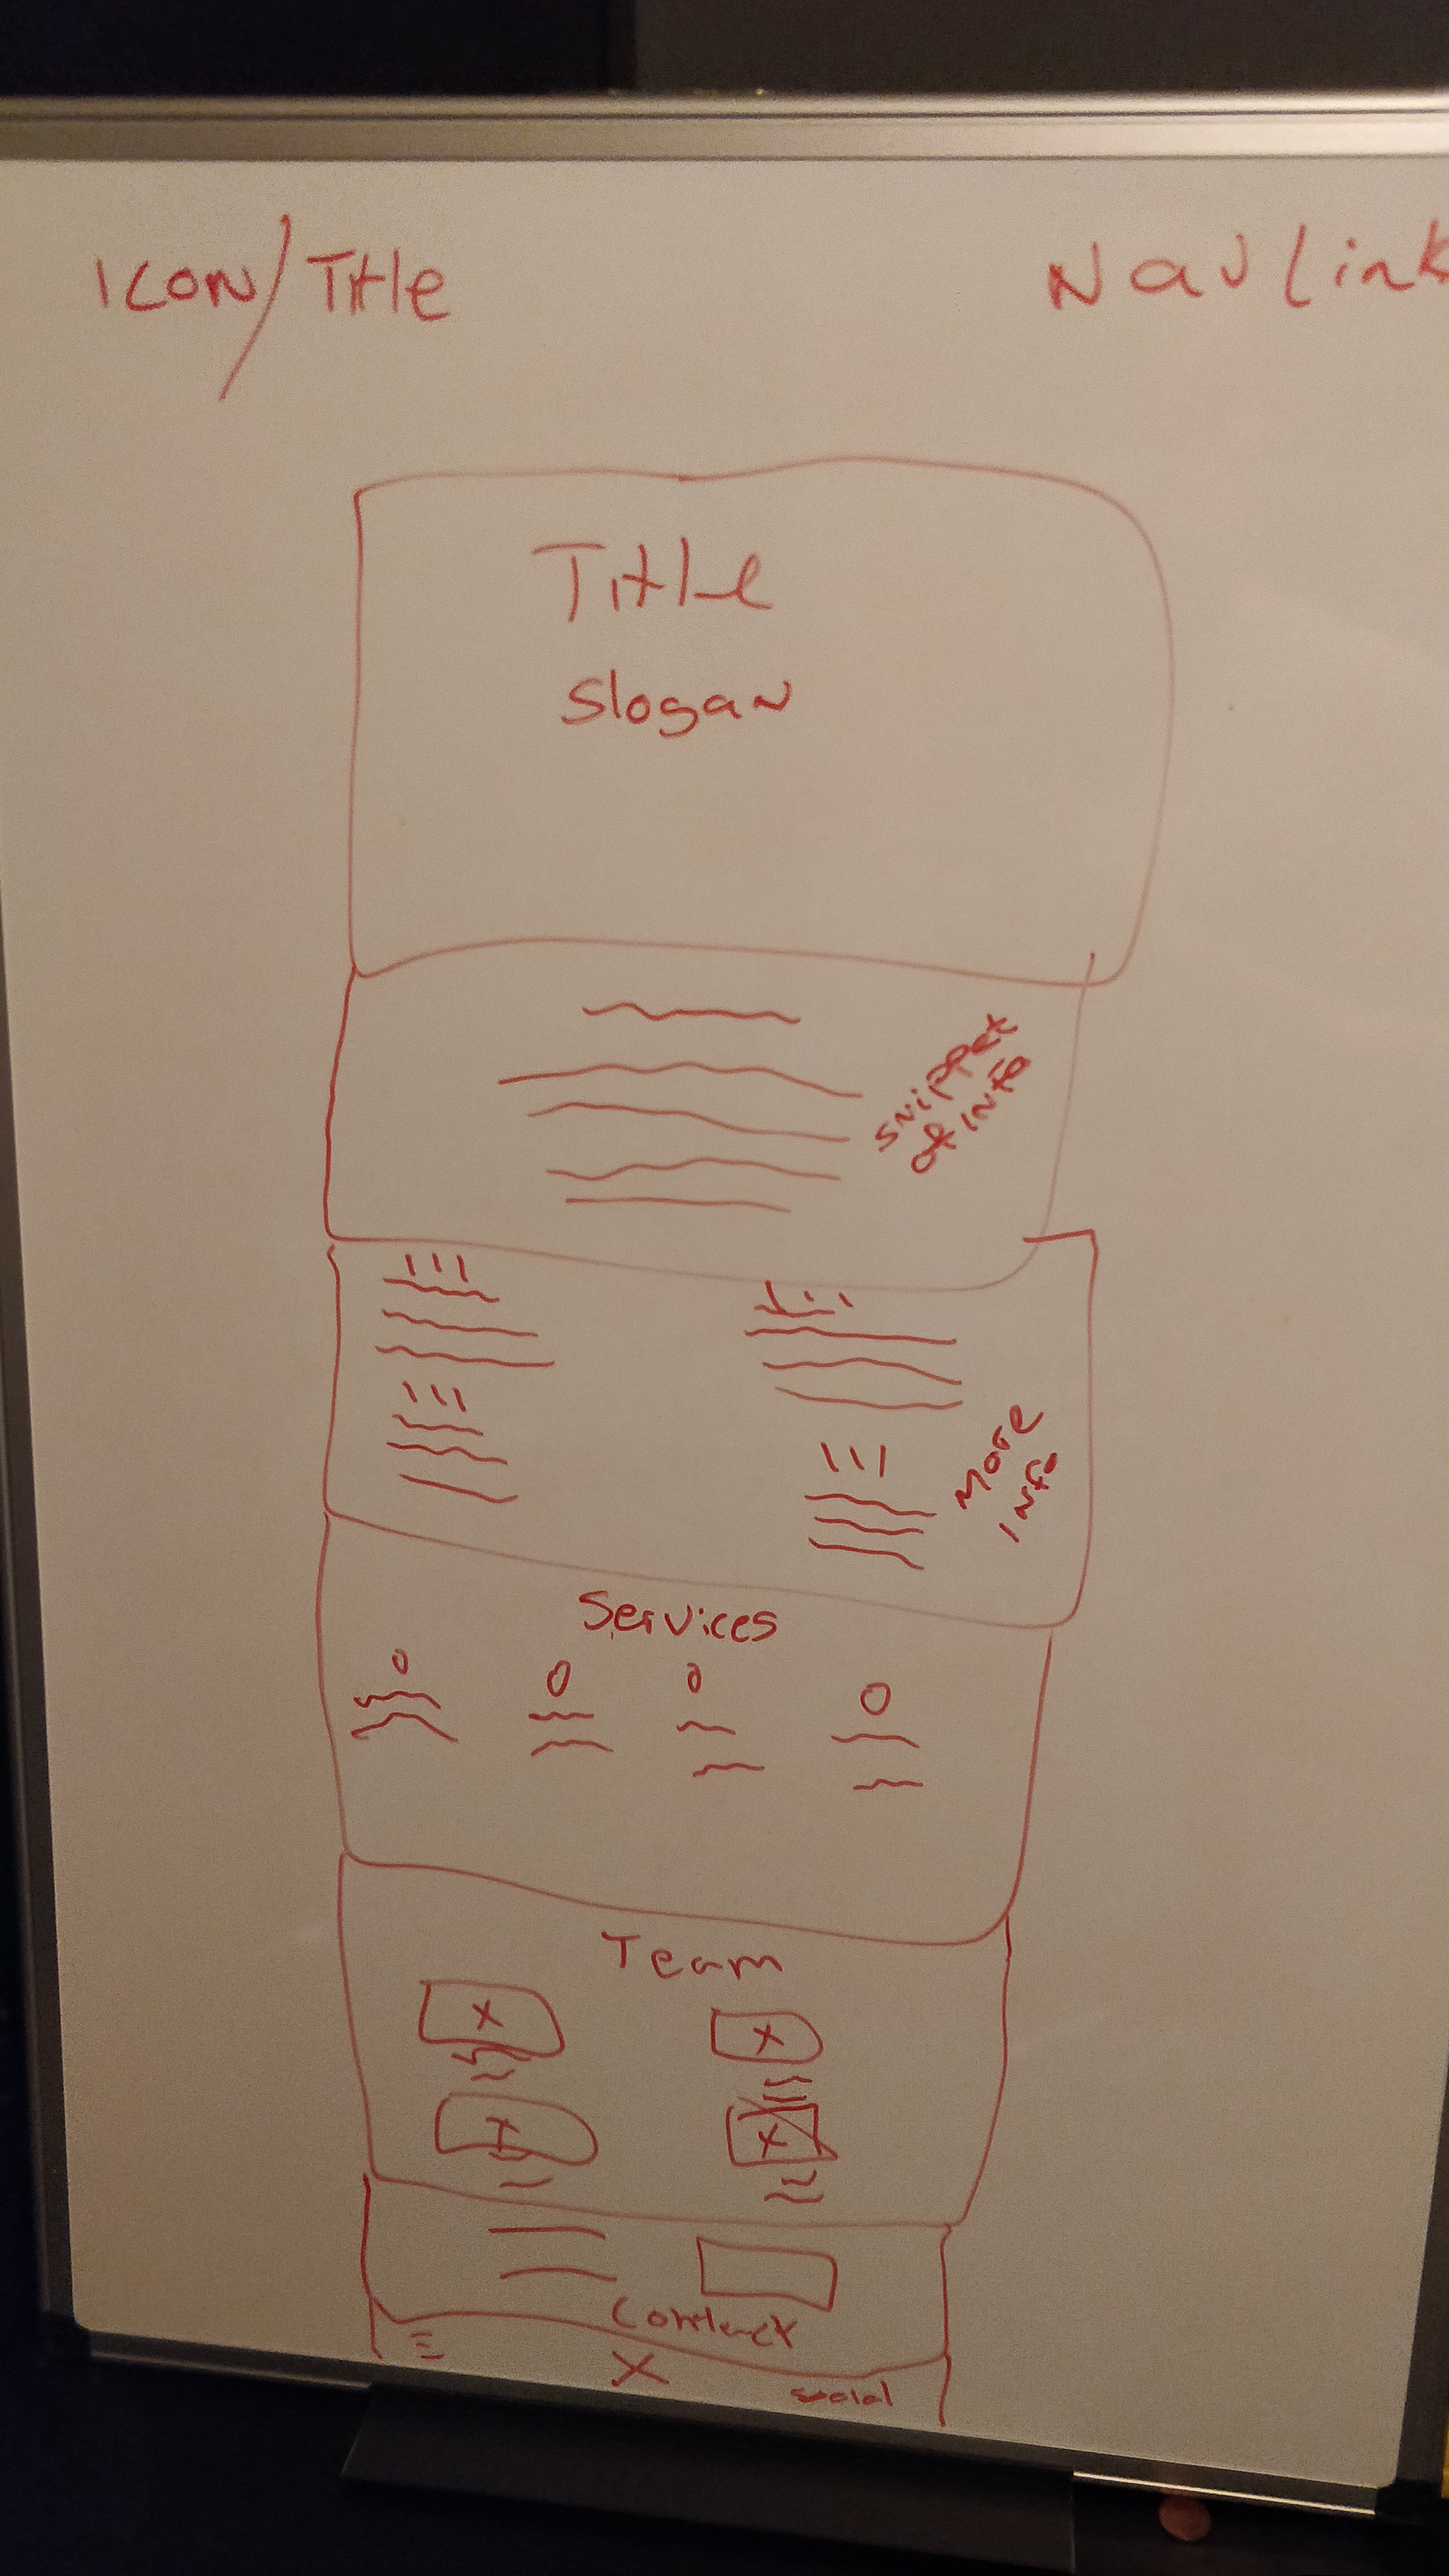 ICON/Title
Nav link
Title
Slogan
Snippet
of info
More
info
Services
Team
Contact
social